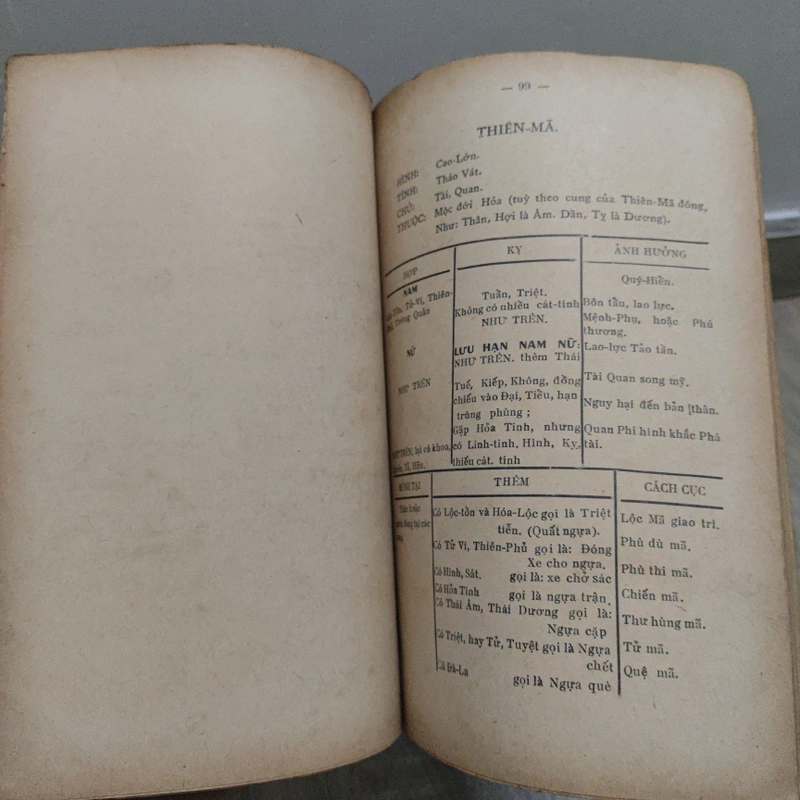 — 99 —
THIÊN-MÃ.
HÌNH: Cao-Lớn.
TÍNH: Tháo Vát.
CHỦ: Tài, Quan.
THUỘC: Mộc đới Hỏa (tuỳ theo cung của Thiên-Mã đóng,
Như: Thân, Hợi là Âm. Dần, Tỵ là Dương).
HỢP KỴ ẢNH HƯỞNG
NAM Tuần, Triệt. Quý-Hiển.
Tồn, Tử-Vi, Thiên- Không có nhiều cát-tinh Bôn tẩu, lao lực.
Tướng Quân NHƯ TRÊN. Mệnh-Phụ, hoặc Phá
thương.
NỮ LƯU HẠN NAM NỮ: Lao-lực Tảo tần.
NHƯ TRÊN. thêm Thái
NHƯ TRÊN Tuế, Kiếp, Không, đồng Tài Quan song mỹ.
chiếu vào Đại, Tiểu, hạn Nguy hại đến bản thân.
trùng phùng ;
Gặp Hỏa Tinh, nhưng Quan Phi hình khắc Phá
NHƯ TRÊN; lại có khoa, có Linh-tinh. Hình, Kỵ, tài.
thiếu cát. tinh
THÊM CÁCH CỤC
Có Lộc-tồn và Hóa-Lộc gọi là Triệt Lộc Mã giao trì.
tiễn. (Quất ngựa).
Có Tử Vi, Thiên-Phủ gọi là: Đóng Phù dù mã.
Xe cho ngựa.
Có Hình, Sát. gọi là: xe chở sác Phù thi mã.
Có Hỏa Tinh gọi là ngựa trận. Chiến mã.
Có Thái Âm, Thái Dương gọi là: Thư hùng mã.
Ngựa cặp
Có Triệt, hay Tử, Tuyệt gọi là Ngựa Tử mã.
chết
Có Đà-La gọi là Ngựa què Quệ mã.